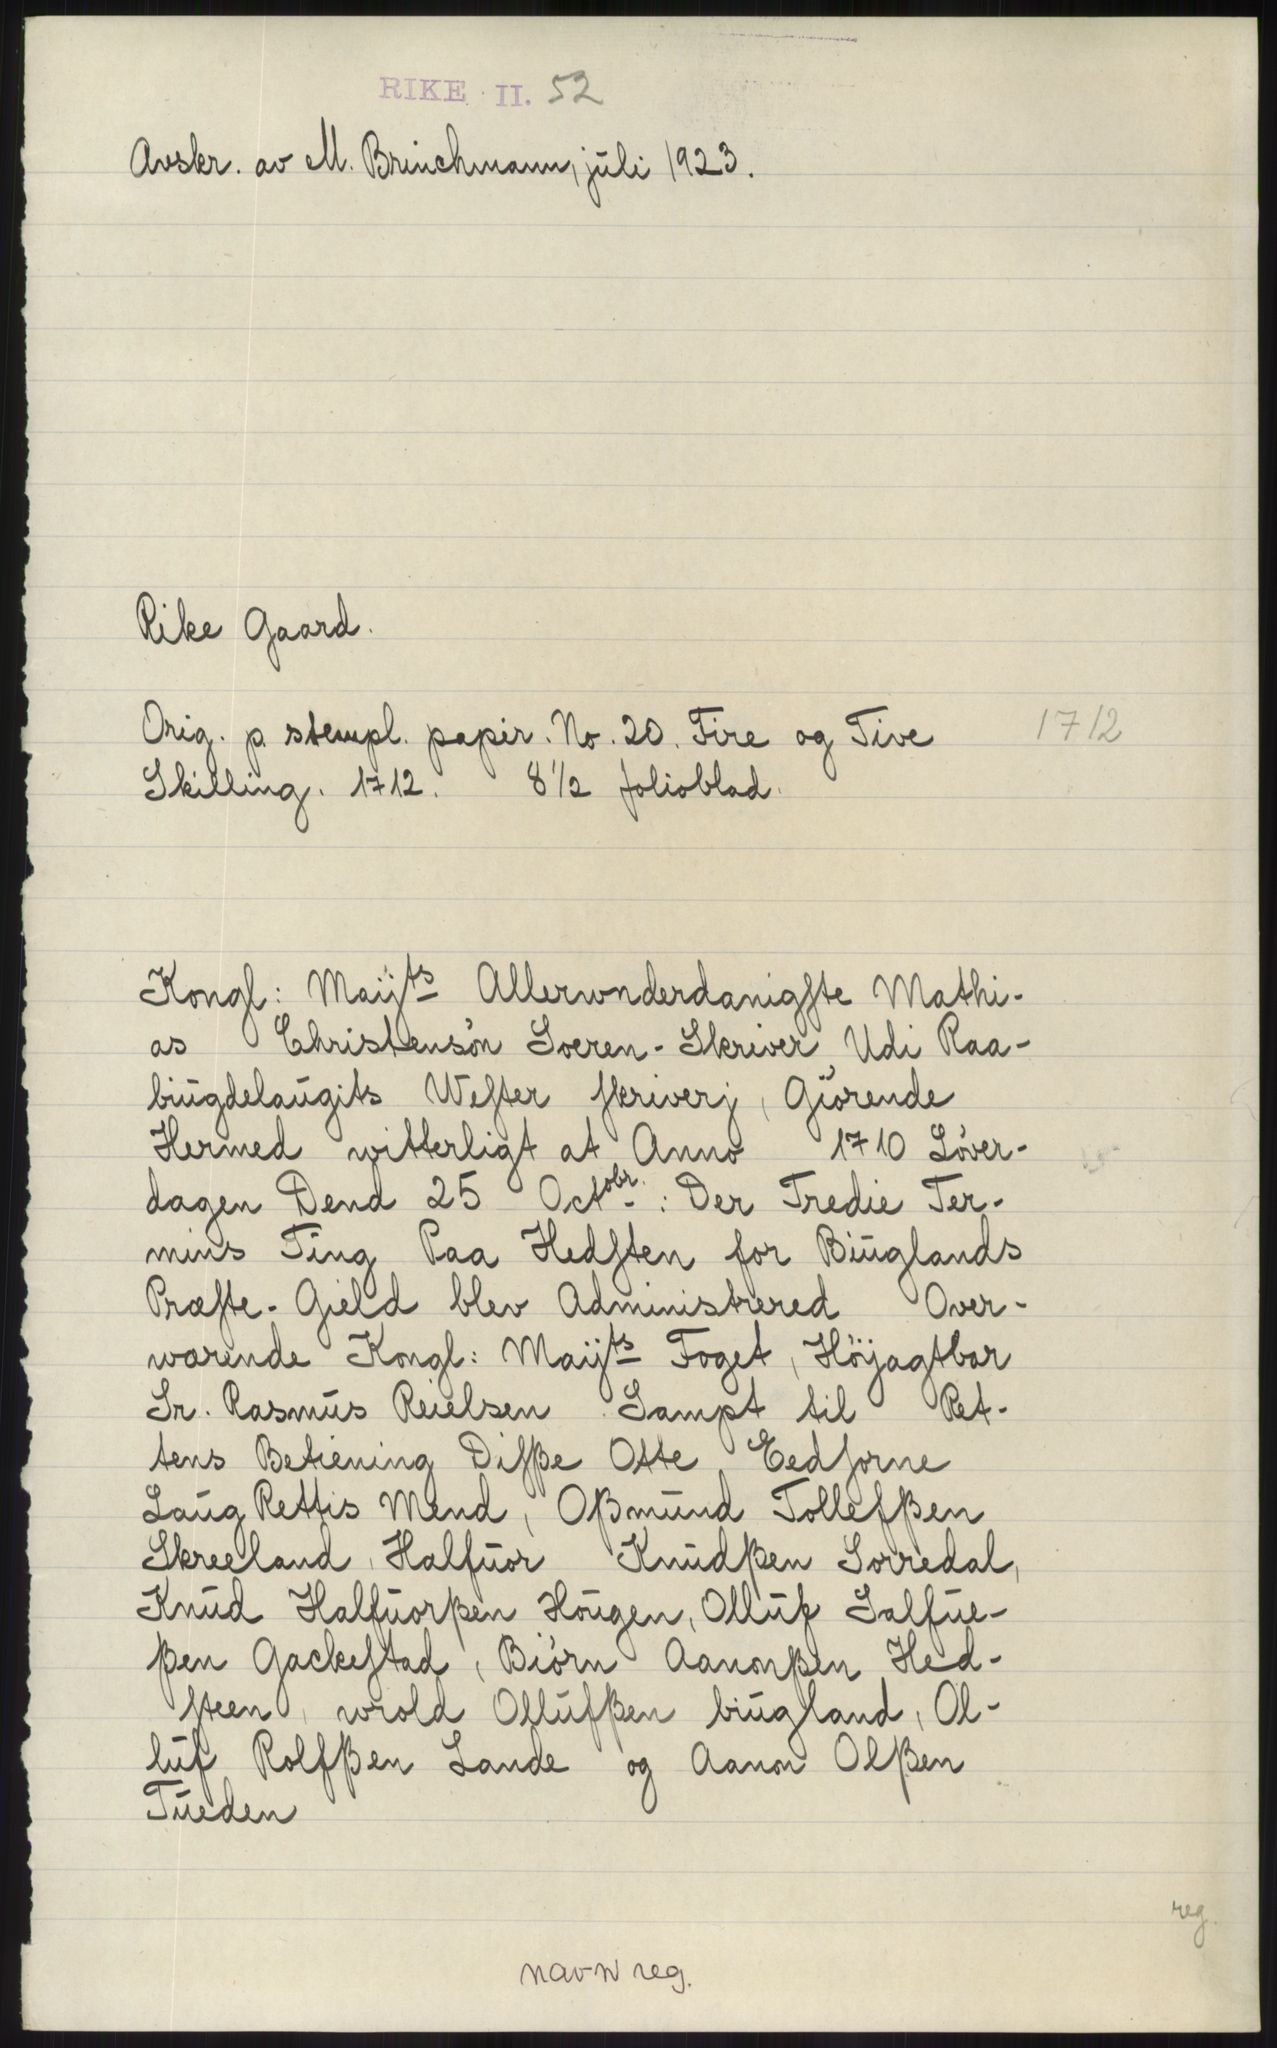 RIKE II. 52
Avskr. av M. Brinchmann, juli 1923.
Rike Gaard.
Orig. p. stempl. papir. No. 20. Fire og Tive
1712
Skilling. 1712. 8 1/2 folioblad.
Kongl: Maÿts Allerwnderdanigste Mathi-
as Christensøn Soeren-Skriver Udi Raa-
biugdelaugits Wester skriverj, Giörende
Hermed witterligt at Anno 1710 Löver-
dagen Dend 25 Octobr: Der Tredie Ter-
mins Ting Paa Hedsten for Biuglands
Præste-Gield blev Administrered Over-
wærende Kongl: Maÿts Foget, Höÿagtbar
Sr. Rasmus Reielsen Sampt til Ret-
tens Betiening Disße Otte Eedsorne
Laug Rettis Mend, Oßmund Tollefßen
Skreeland, Halfuor Knudßen Sorredal,
Knud Halfuorßen Hougen, Olluf Salfue-
ßen Gackestad, Biörn Aanonßen Hed-
steen, wrold Ollufßen biugland, Ol-
luf Rolfßen Lande og Aanon Olßen
Tueden
reg.
navn reg.